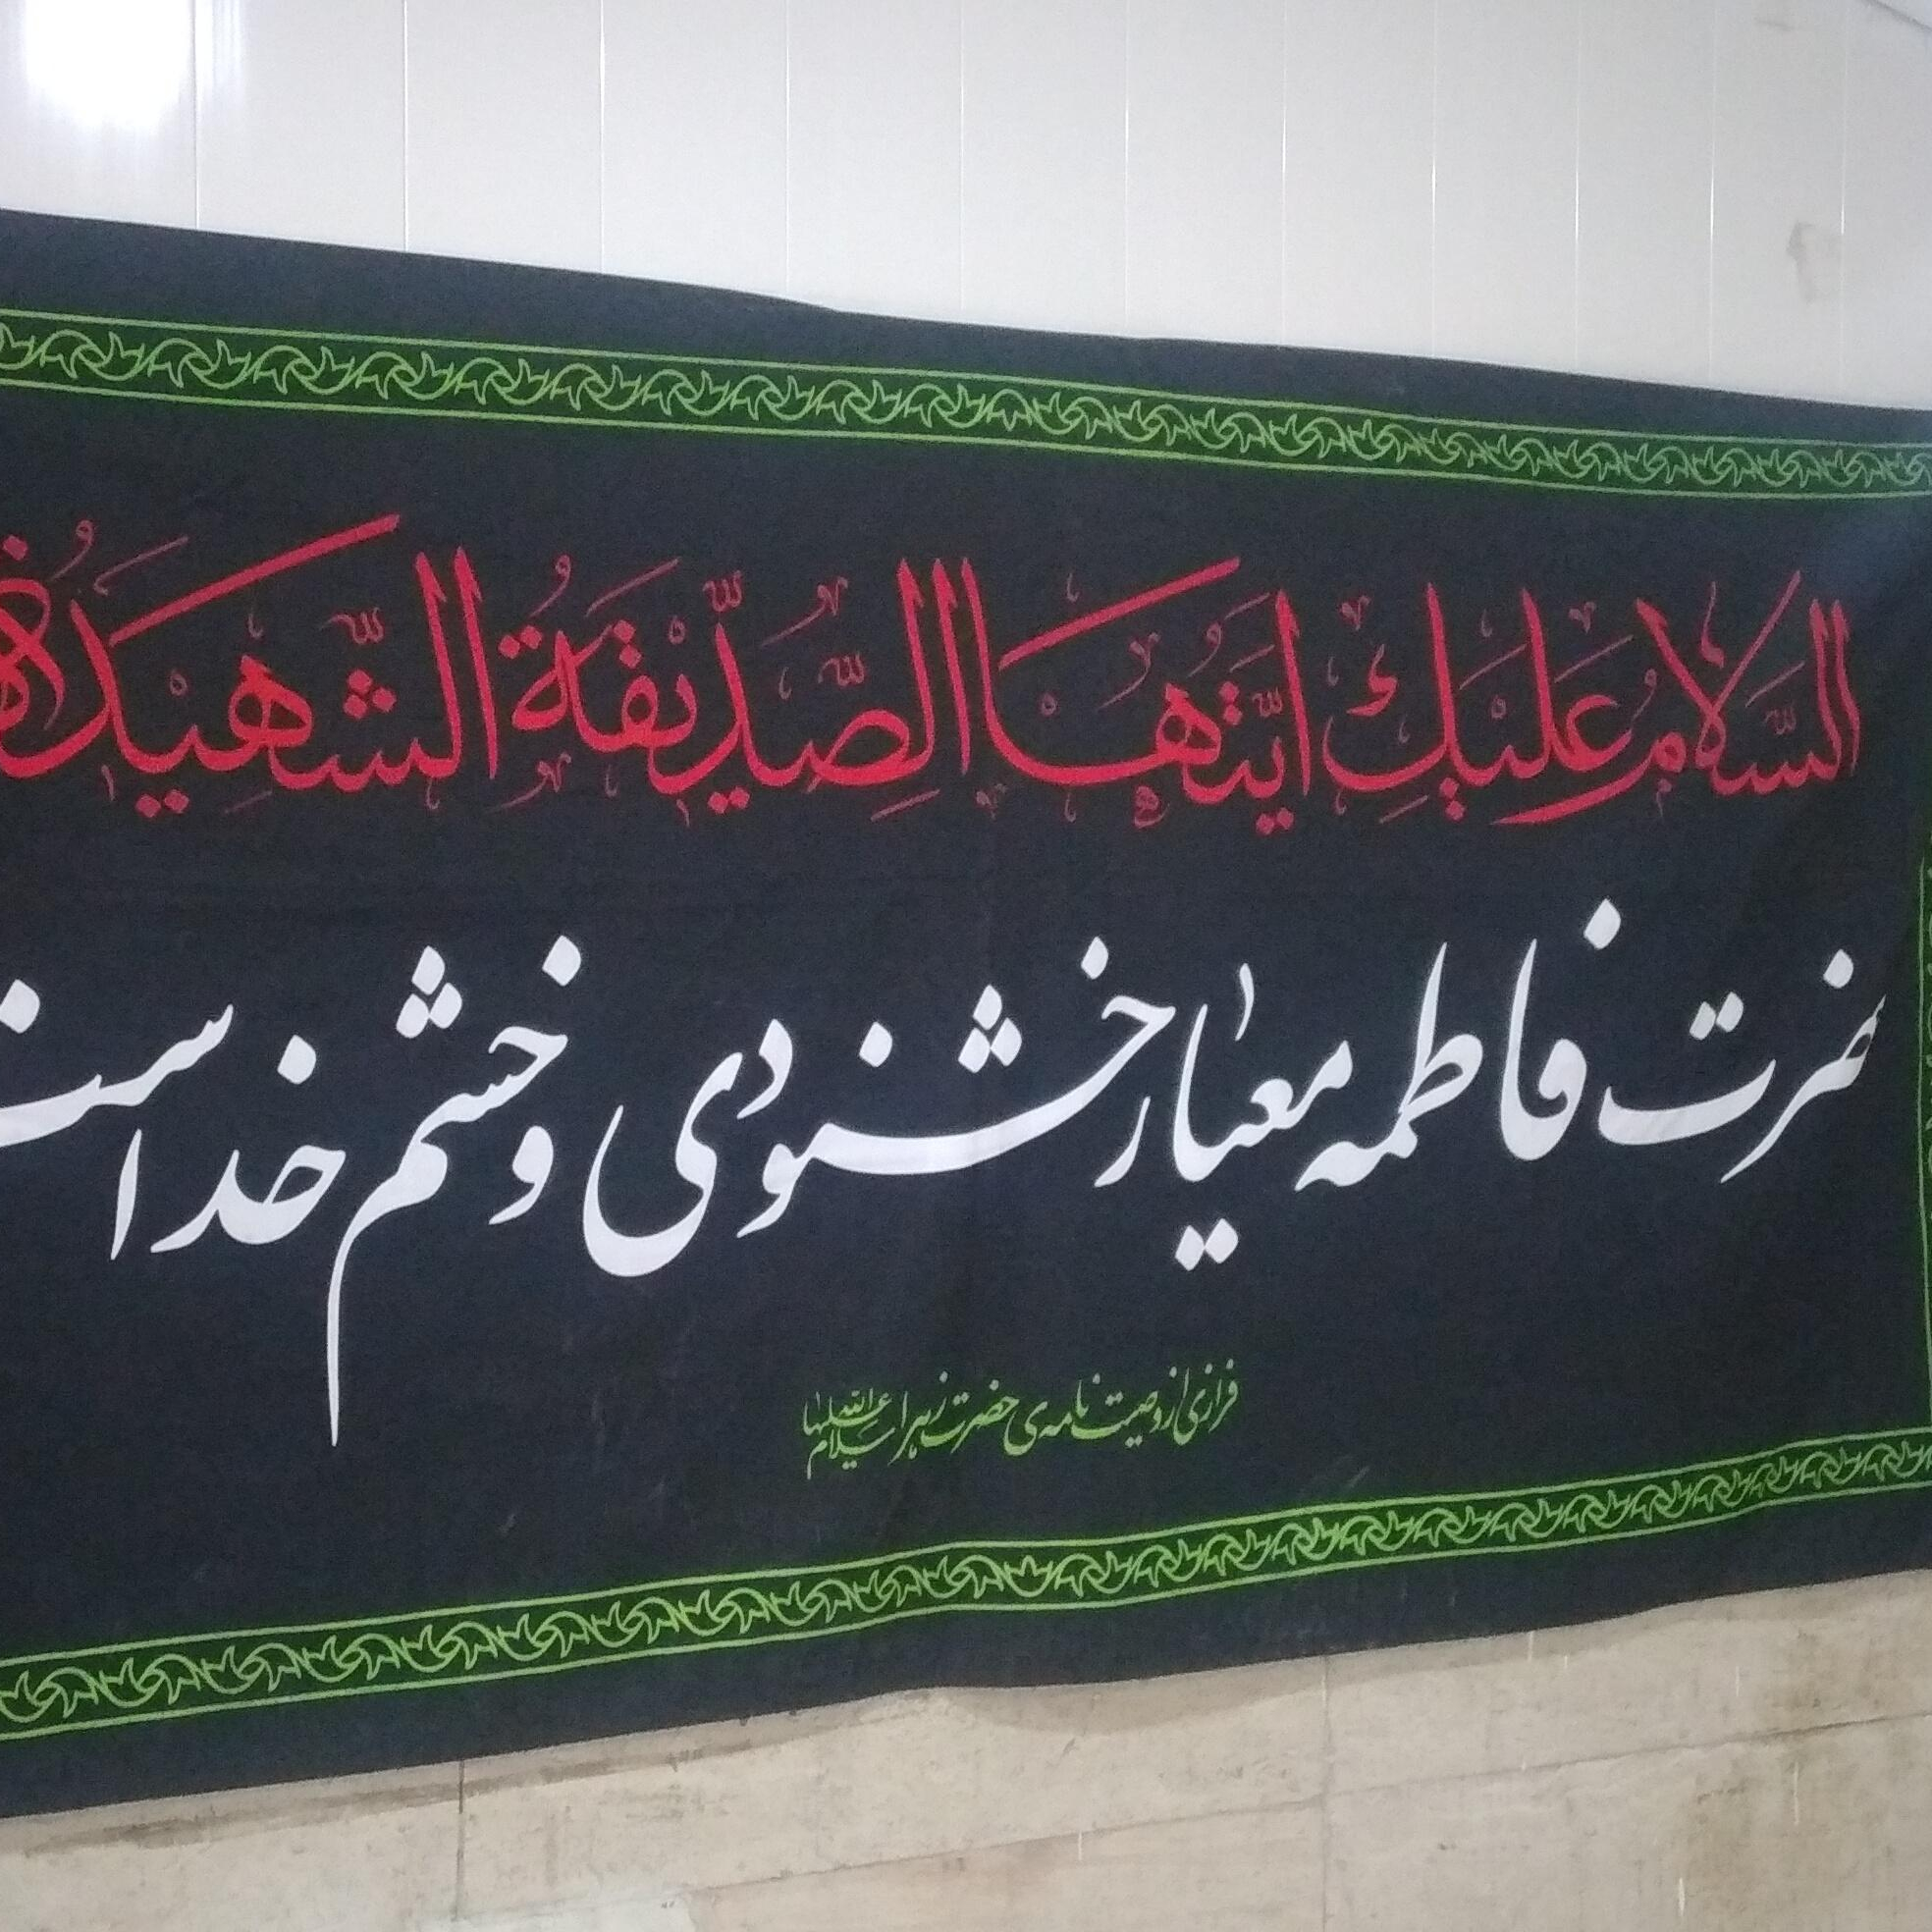 السَّلَامُ عَلَيْكِ اَيَّتُهَا الصِّدِّيقَةُ الشَّهِيْدَةُ
حضرت فاطمه معیار خشنودی و خشم خداست
فرازی از وصیت نامه‌ی حضرت زهرا سلام الله علیها